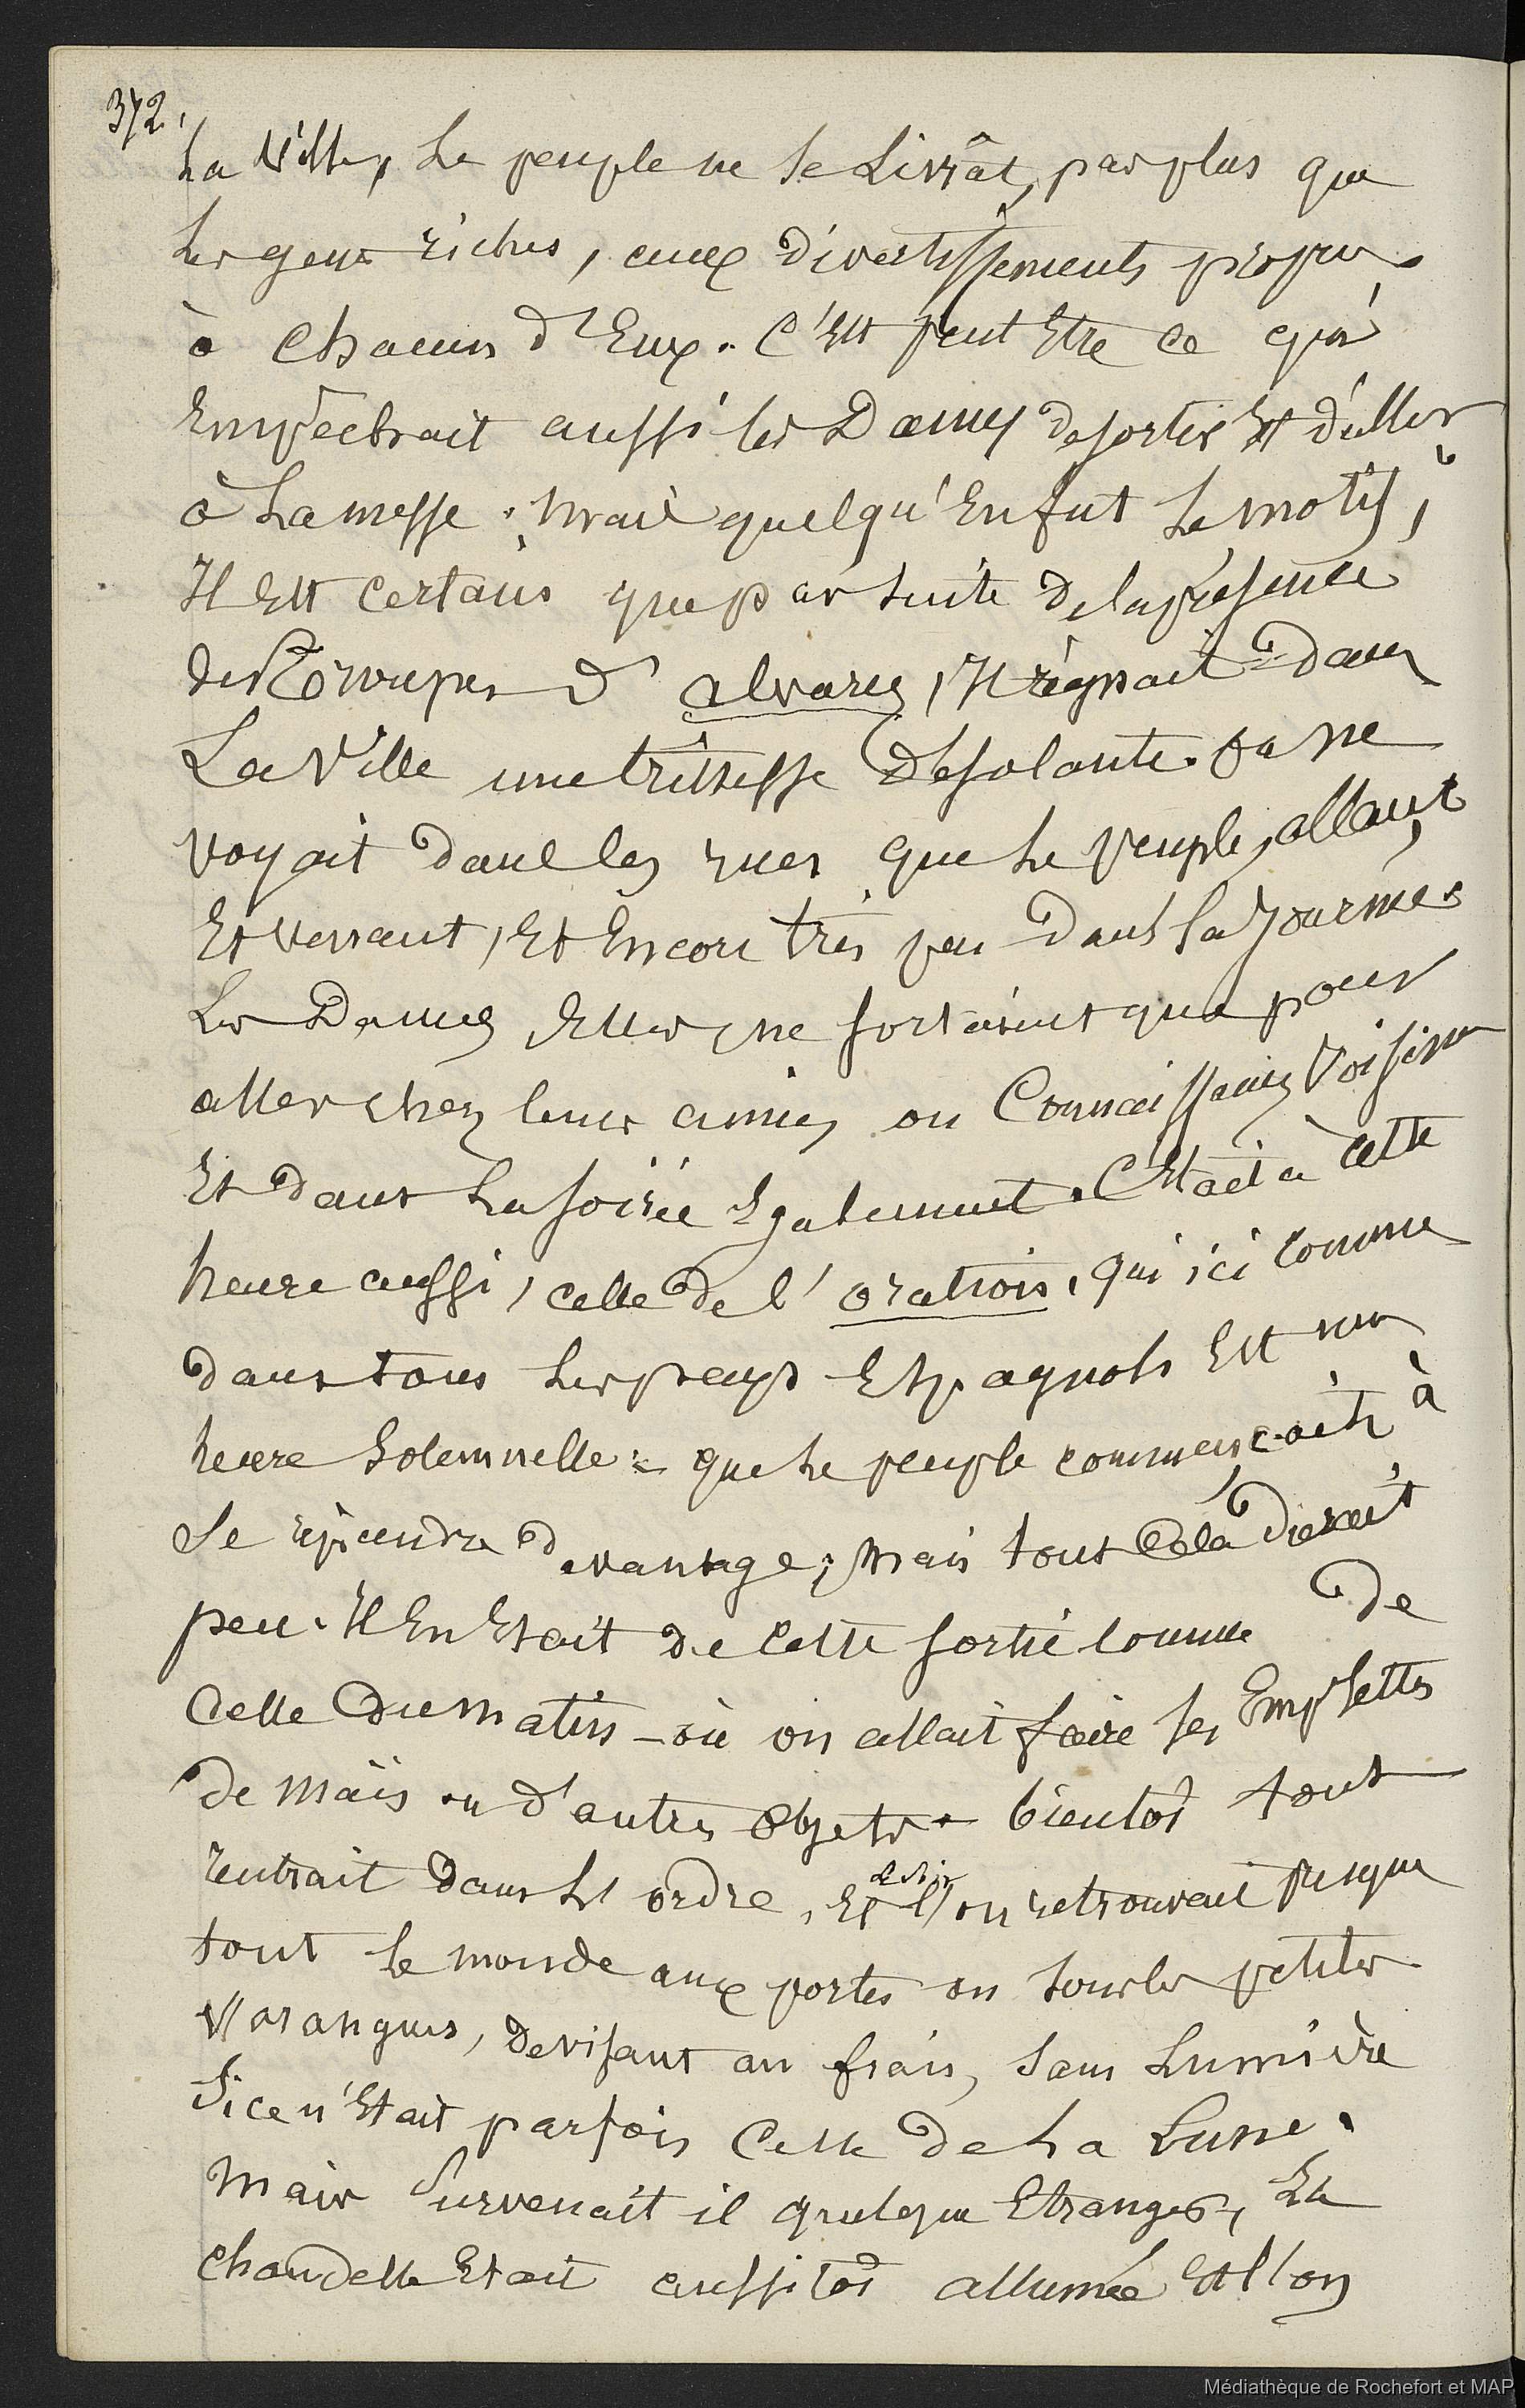 372.
La Ville, Le peuple ne se Livrât, pas plus que
Les gens riches, aux divertissements propres
à chacun d'Eux. C'Est peut Etre ce qui
Empêchait aussi les Dames de sortir Et d'aller
à La messe. Mais quelqu'En fut Le motif,
Il Est certain que par suite de la présence
des Troupes d'alvarez, Il régnait dans
La Ville une tristesse désolante. On ne
voyait dans les rues que Le peuple, allant
Et venant, Et Encore très peu dans La journée
Les Dames Elles, ne sortaient que pour
aller chez leurs amies ou Connaissances Voisines
Et dans La soirée Egalement. C'Etait à cette
heure aussi, celle de l'oration, qui ici comme
dans tous Les pays Espagnols Est une
heure Solemnelle - que Le peuple commençait à
Se répandre davantage; Mais tout Cela durait
peu. Il En Etait de cette sortie comme de
Celle du Matin - où on allait faire ses Emplettes
de Maïs ou d'autres Objets - bientôt tout
rentrait dans L'ordre, Et le soir l'on retrouvait presque
tout Le monde aux portes ou sous les petites
Varangues, devisant au frais, sans Lumière
Si ce n'Etait parfois Celle de La Lune.
Mais Survenait il quelque Etranger, La
chandelle Etait aussitôt allumée Et l'on
Médiathèque de Rochefort et MAP